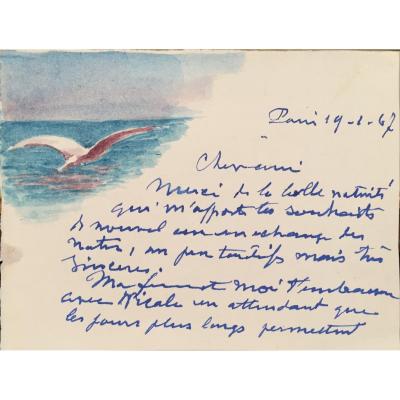 Paris 19-1-67
Cher ami
Merci de la belle nativité
qui m'apporte tes souhaits
de nouvel an en échange des
notres, un peu tardifs mais très
sinceres.
Ma femme et moi t'embrassons
avec Nicole en attendant que
les jours plus longs permettent